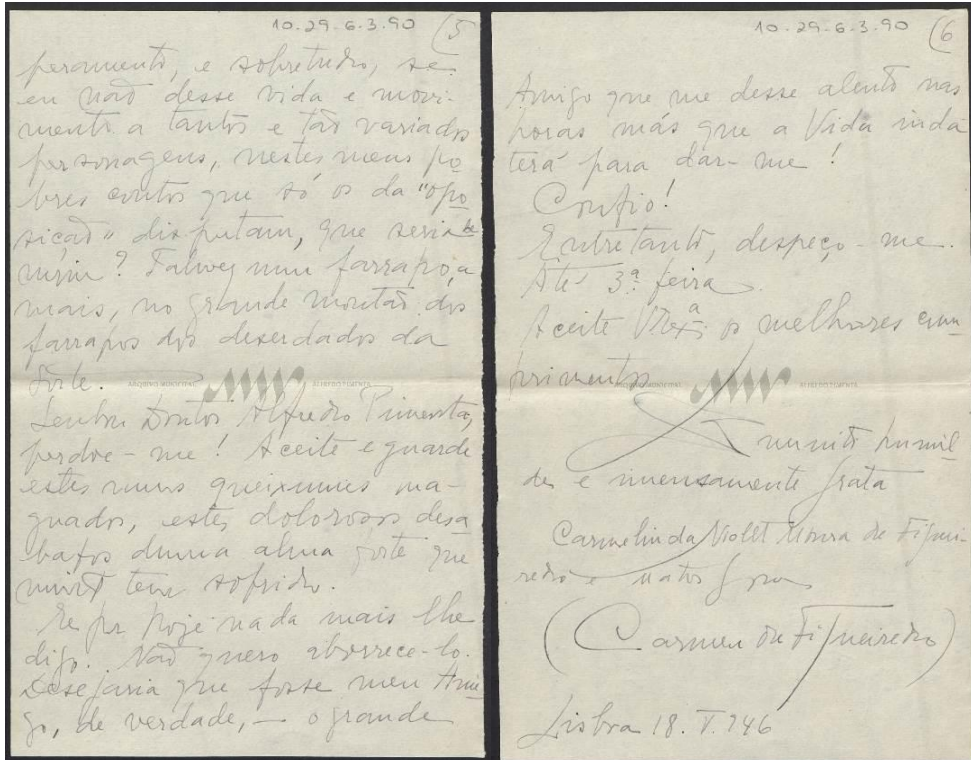 10-29-6-3-90 (5
peramento, e sobretudo, se
eu não desse vida e movi-
mento a tantos e tão variados
personagens, nestes meus po
bres contos que só os da "opo
sição" disputam, que seria de
mim? Talvez num farrapo, a
mais, no grande montão dos
farrapos dos deserdados da
Sorte.
ARQUIVO MUNICIPAL ALFREDO PIMENTA
Senhor Doutor Alfredo Pimenta,
perdoe-me! Aceite e guarde
estes meus queixumes ma-
guados, estes dolorosos desa
bafos duma alma forte que
muito tem sofrido.
E por hoje nada mais lhe
digo. Não quero aborrece-lo.
Desejaria que fosse meu Ami
go, de verdade, — o grande
10-29-6-3-90 (6
Amigo que me desse alento nas
horas más que a Vida inda
terá para dar-me!
Confio!
Entretanto, despeço-me.
Até 3ª feira.
Aceite V. Exª os melhores cum
primentos
ARQUIVO MUNICIPAL ALFREDO PIMENTA
muito humil
de e imensamente grata
Carmelinda Niolet Moura de Figuei
redo e Matos
(Carmen de Figueiredo)
Lisboa 18.V.946